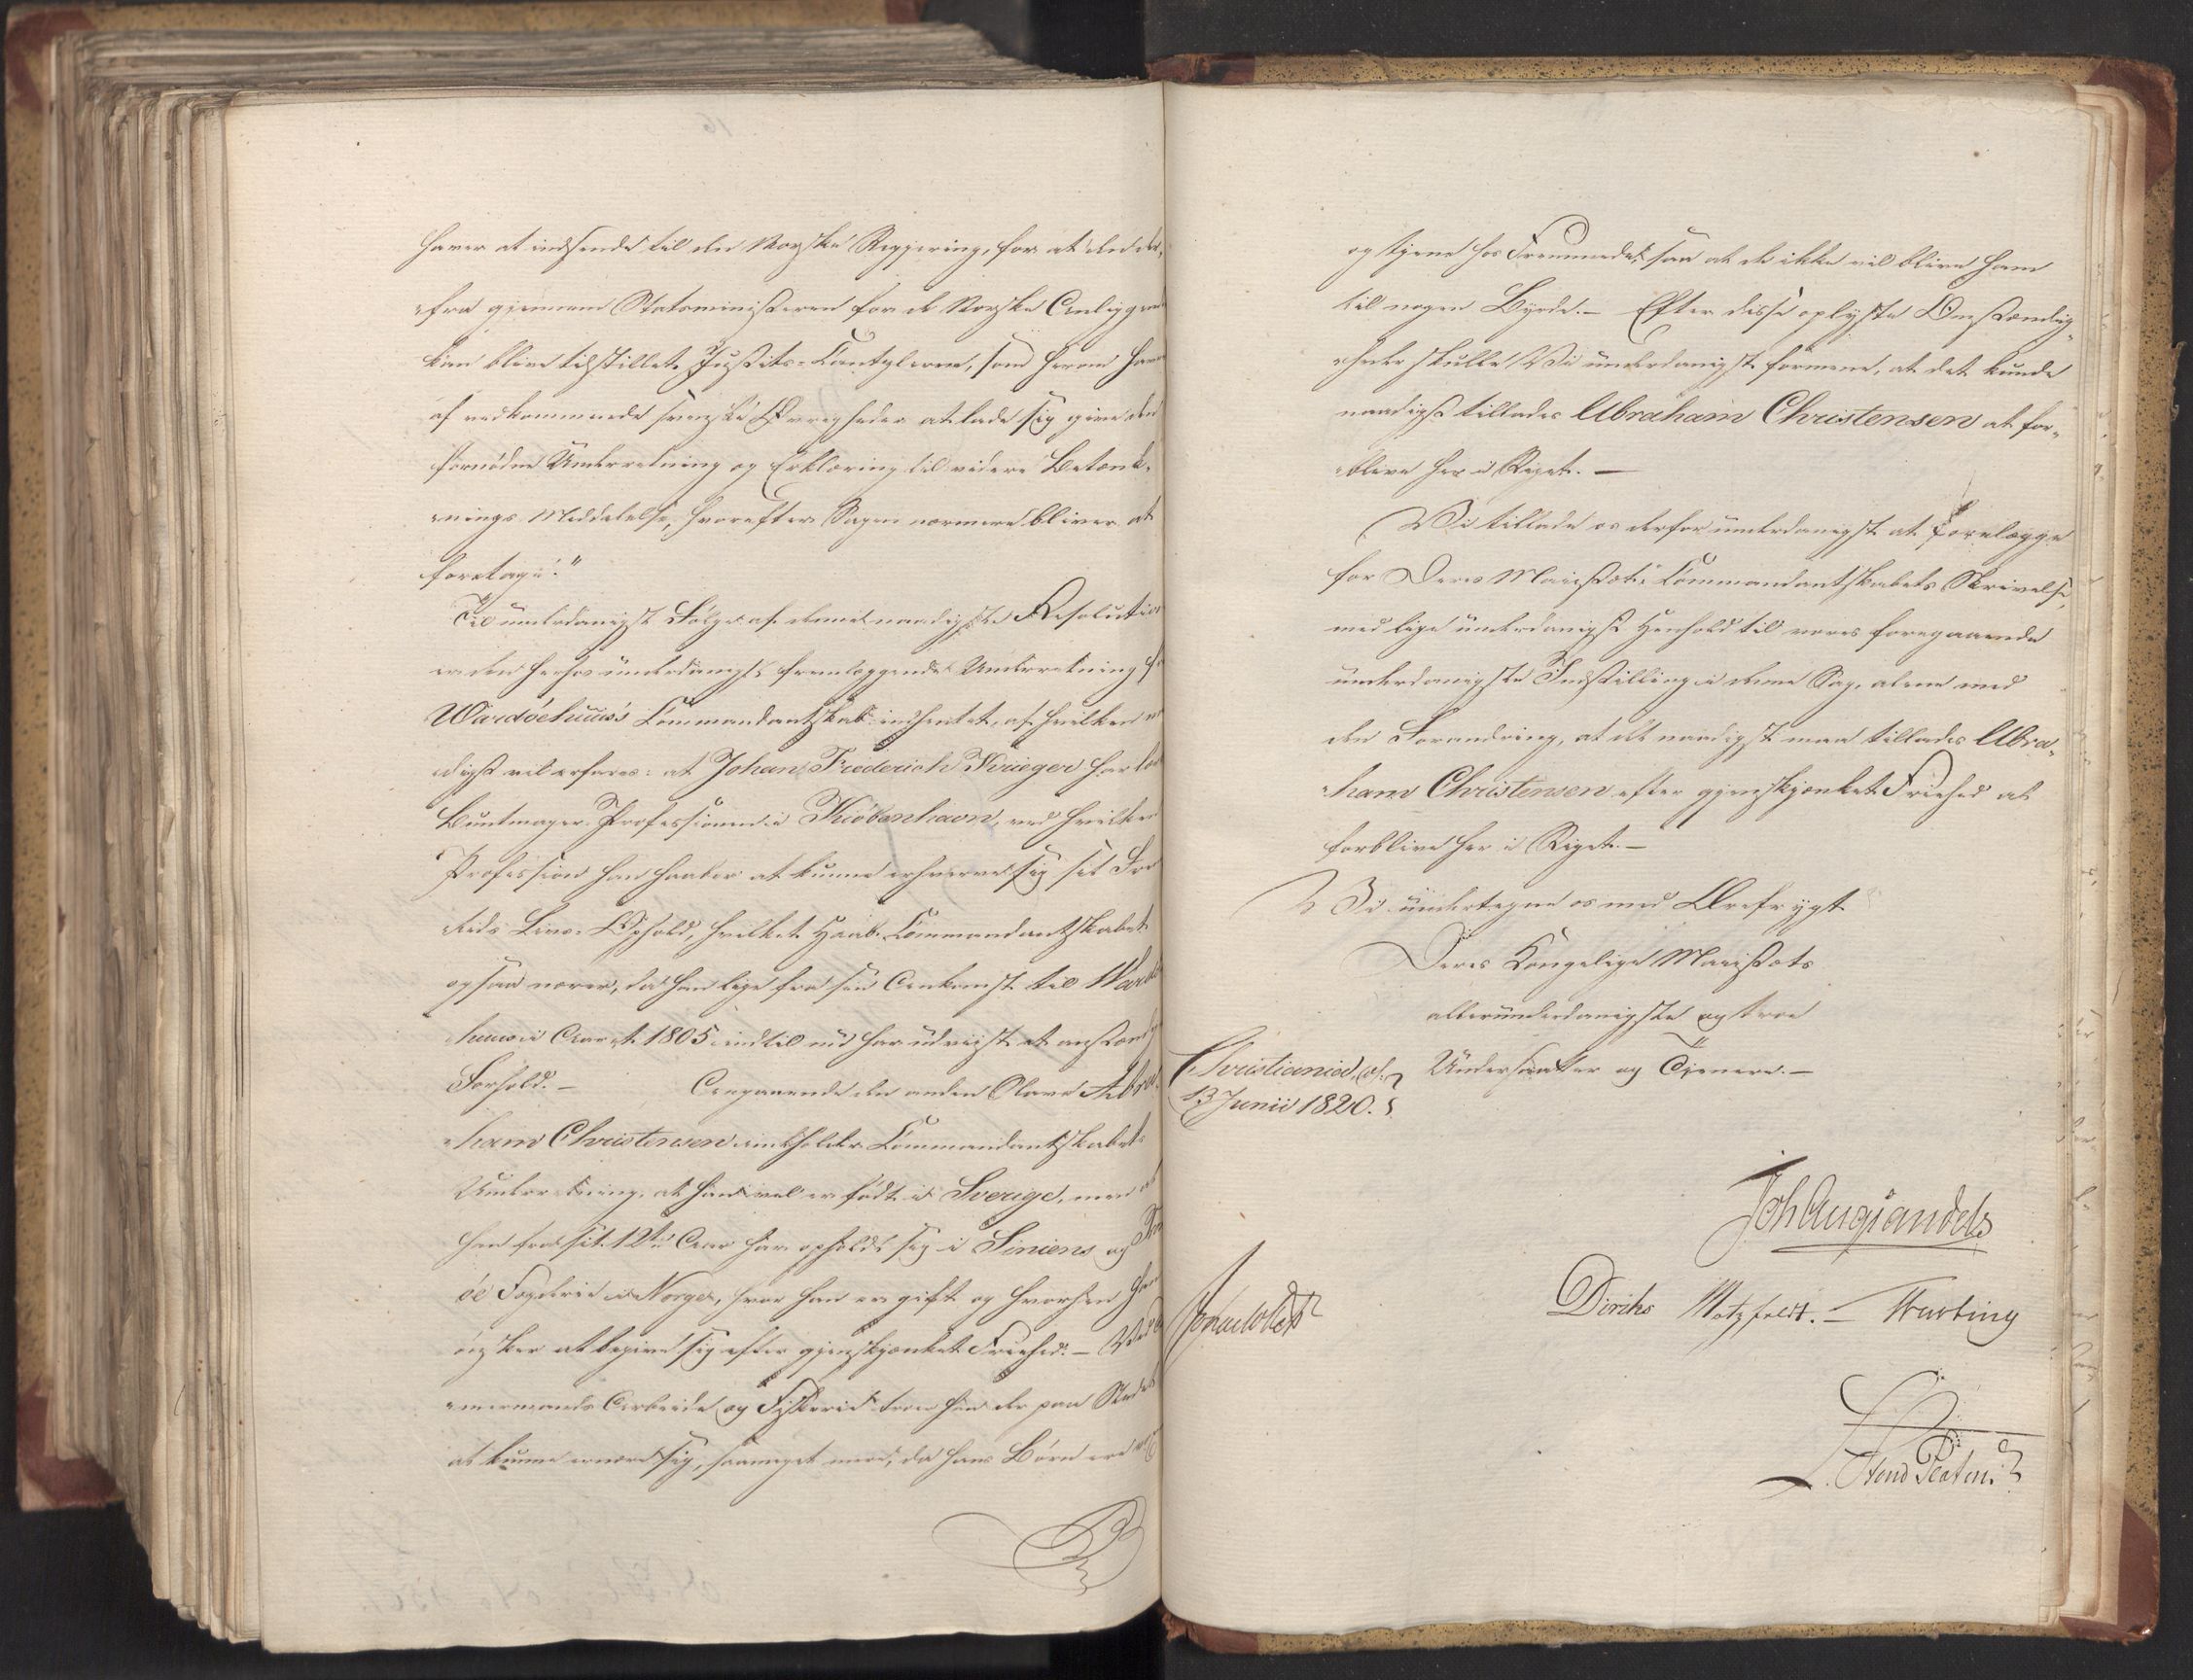 haver at indsende til den Norske Regjering, for at den der-
fra gjennem Statsministeren for de Norske Anliggend
kan blive tilstillet Justits-Cantzleren, som herom haver
af vedkommende svenske Øvrigheder at lade sig give den
fornødne Underretning og Erklæring til videre Betænk-
nings Meddelelse, hvorefter Sagen nærmere bliver at
foretage."
Til underdanigst Følge af denne naadigste Resolution
er den herhos underdanigst fremlæggende Underretning fra
Wardöehuus's Commandantskab indhentet, af hvilken
digst vil erfares: at Johan Friderich Krieger har lært
Buntmager Professionen i Kiöbenhavn, ved hvilken
Profession han haaber at kunne erhverve sig sit Frem-
tids Livs-Ophold, hvilket Haab Commandantskabet
ogsaa nærer, da han lige fra sin Ankomst til Wardöe
huus i Aaret 1805 indtil nu har udviist et anstændigt
Forhold. – Angaaende den anden Slave Abra-
ham Christensen indholder Commandantskabets
Underretning, at han vel er født i Sverige, men at
han fra sit 12te Aar har opholdt sig i Siniens og
öe Fogderie i Norge, hvor han er gift og hvorhen han
ønsker at begive sig efter gjenskjænket Friehed. – Ved
mermands Arbeide og Fiskerie troer han der paa Stedet
at kunne ernære sig, saameget mere, da hans Børn ere
og tjene hos Fremmede, saa at de ikke vil blive ham
til nogen Byrde. – Efter disse oplyste Omstændig-
heder skulle Vi underdanigst formene, at det kunde
naadigst tillades Abraham Christensen at for-
blive her i Riget. –
Vi tillade os derfor underdanigst at forelægge
for Deres Majestæt Commandantskabets Skrivelse,
med lige underdanigst Henhold til vores foregaaende
underdanigste Indstilling i denne Sag, alene med
den Forandring, at det naadigst maa tillades Abra-
ham Christensen efter gjenskjænket Friehed at
forblive her i Riget. –
Vi undertegne os med Ærefrygt
Deres Kongelige Majestæts
allerunderdanigste og troe
Christiania, d.
13 Junii 1820.
Undersaatter og Tjenere. –
Joh Aug Sandels
Diriks Motzfeldt. – Krebting
Sommerfeldt